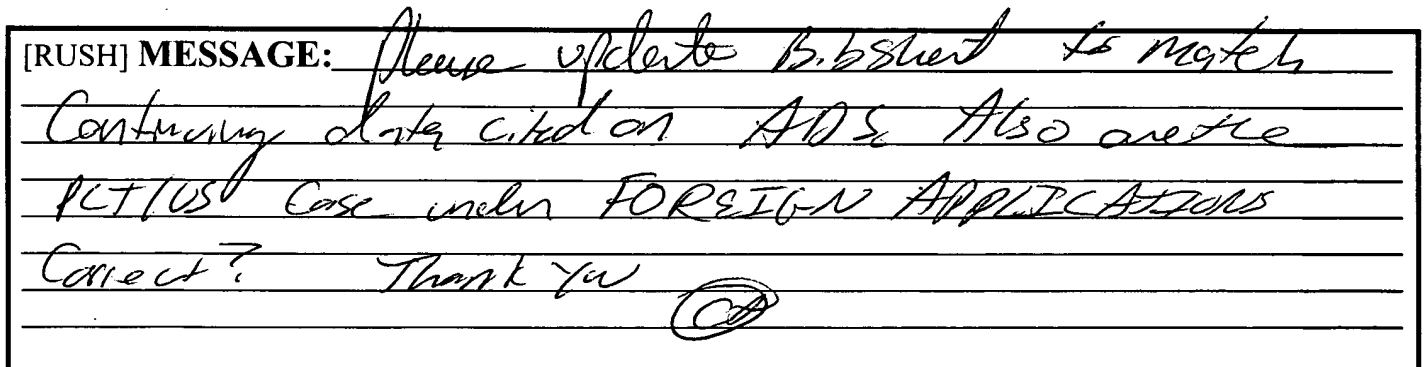 [RUSH] MESSAGE: Please update Bibsheet to match
Continuing data cited on ADS. Also are the
PCT/US Case under FOREIGN APPLICATIONS
Correct? Thank You